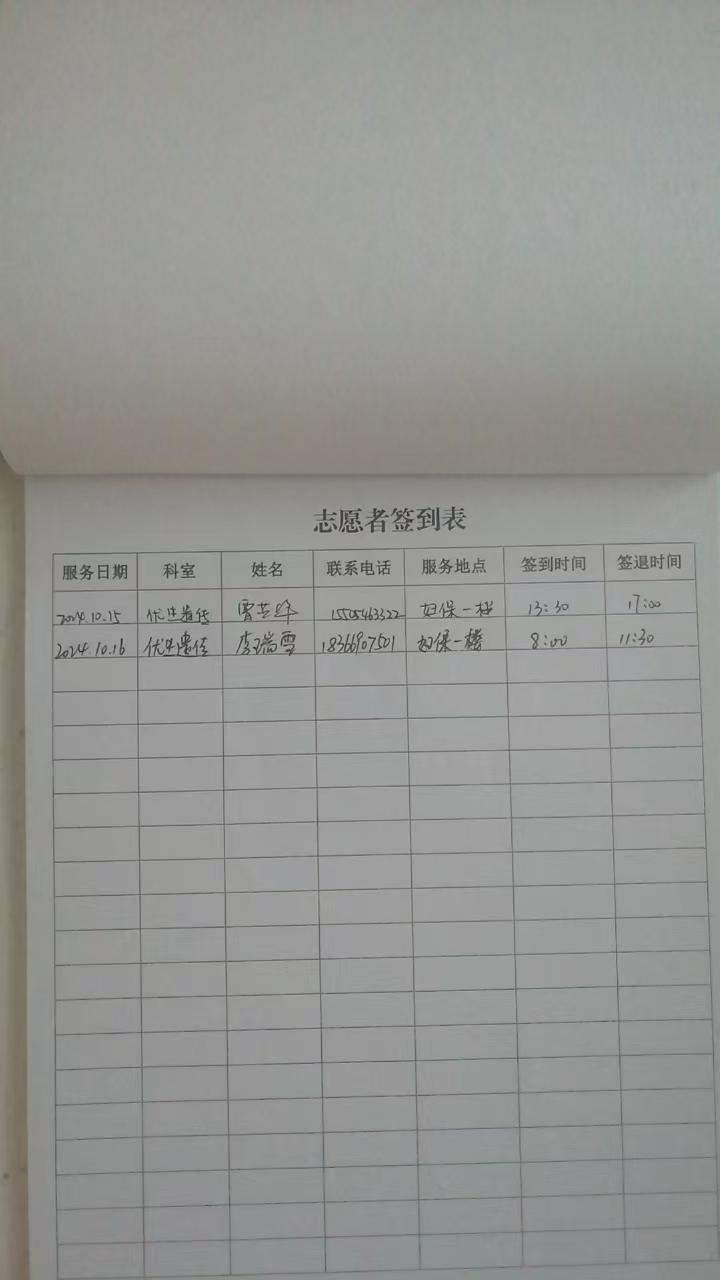 志愿者签到表
服务日期 科室 姓名 联系电话 服务地点 签到时间 签退时间
2024.10.15 优生遗传 15505463322 妇保一楼 13:30 17:00
2024.10.16 优生遗传 李瑞雪 18366907501 妇保一楼 8:00 11:30